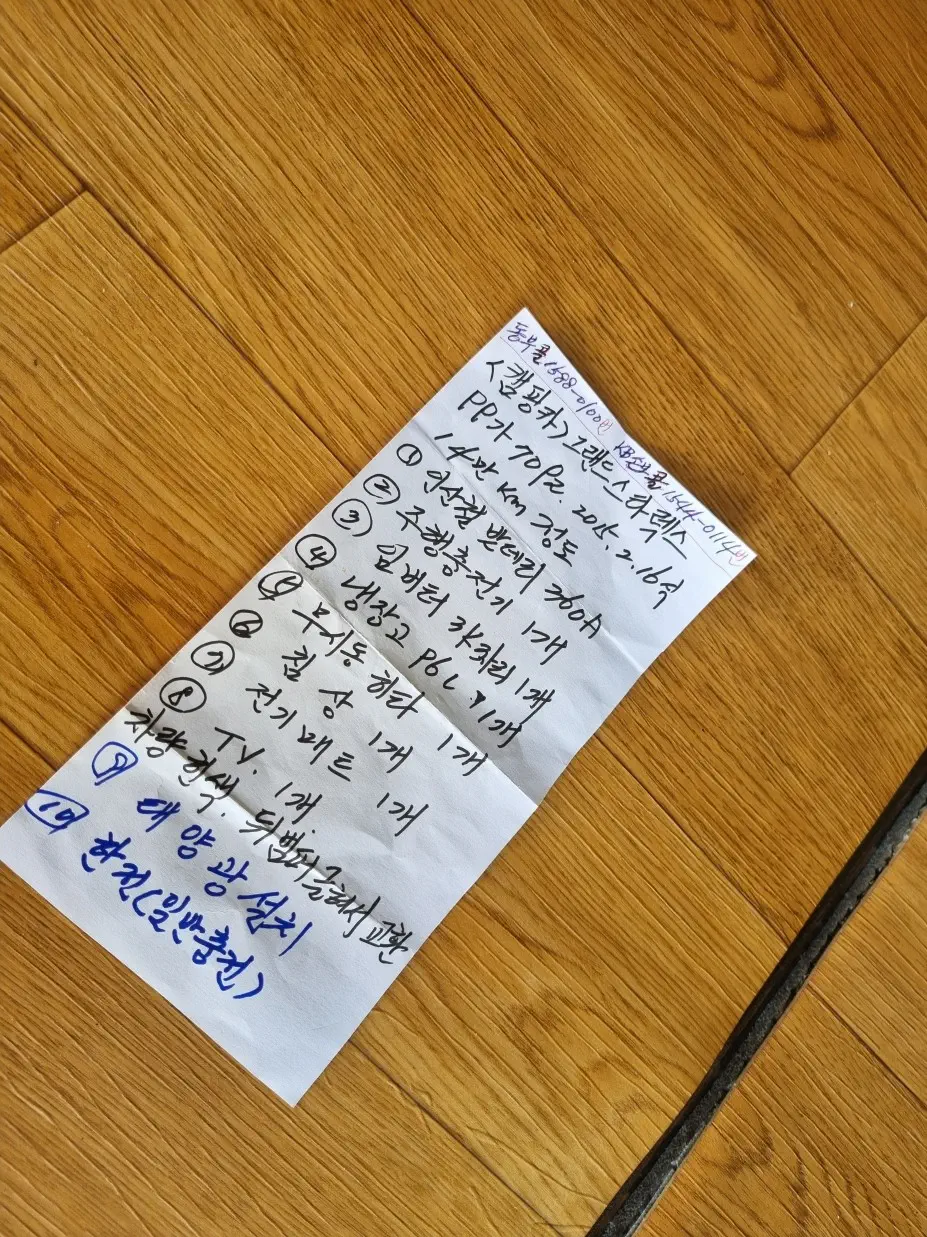 동부콜 1588-0100번 KB손보콜 1544-0114번
<캠핑카> 그랜드 스타렉스
2015. 2. 16식
14만 km 정도
① 인산철 밧데리 360A
② 주행충전기 1개
③ 인버터 3K짜리 1개
④ 냉장고 1개
⑤ 무시동 히타 1개
⑥ 침상 1개
⑦ 전기매트 1개
⑧ TV. 1개.
차량 흰색. 뒤범퍼 교환
⑨ 태양광 설치
⑩ 한전(일반충전)